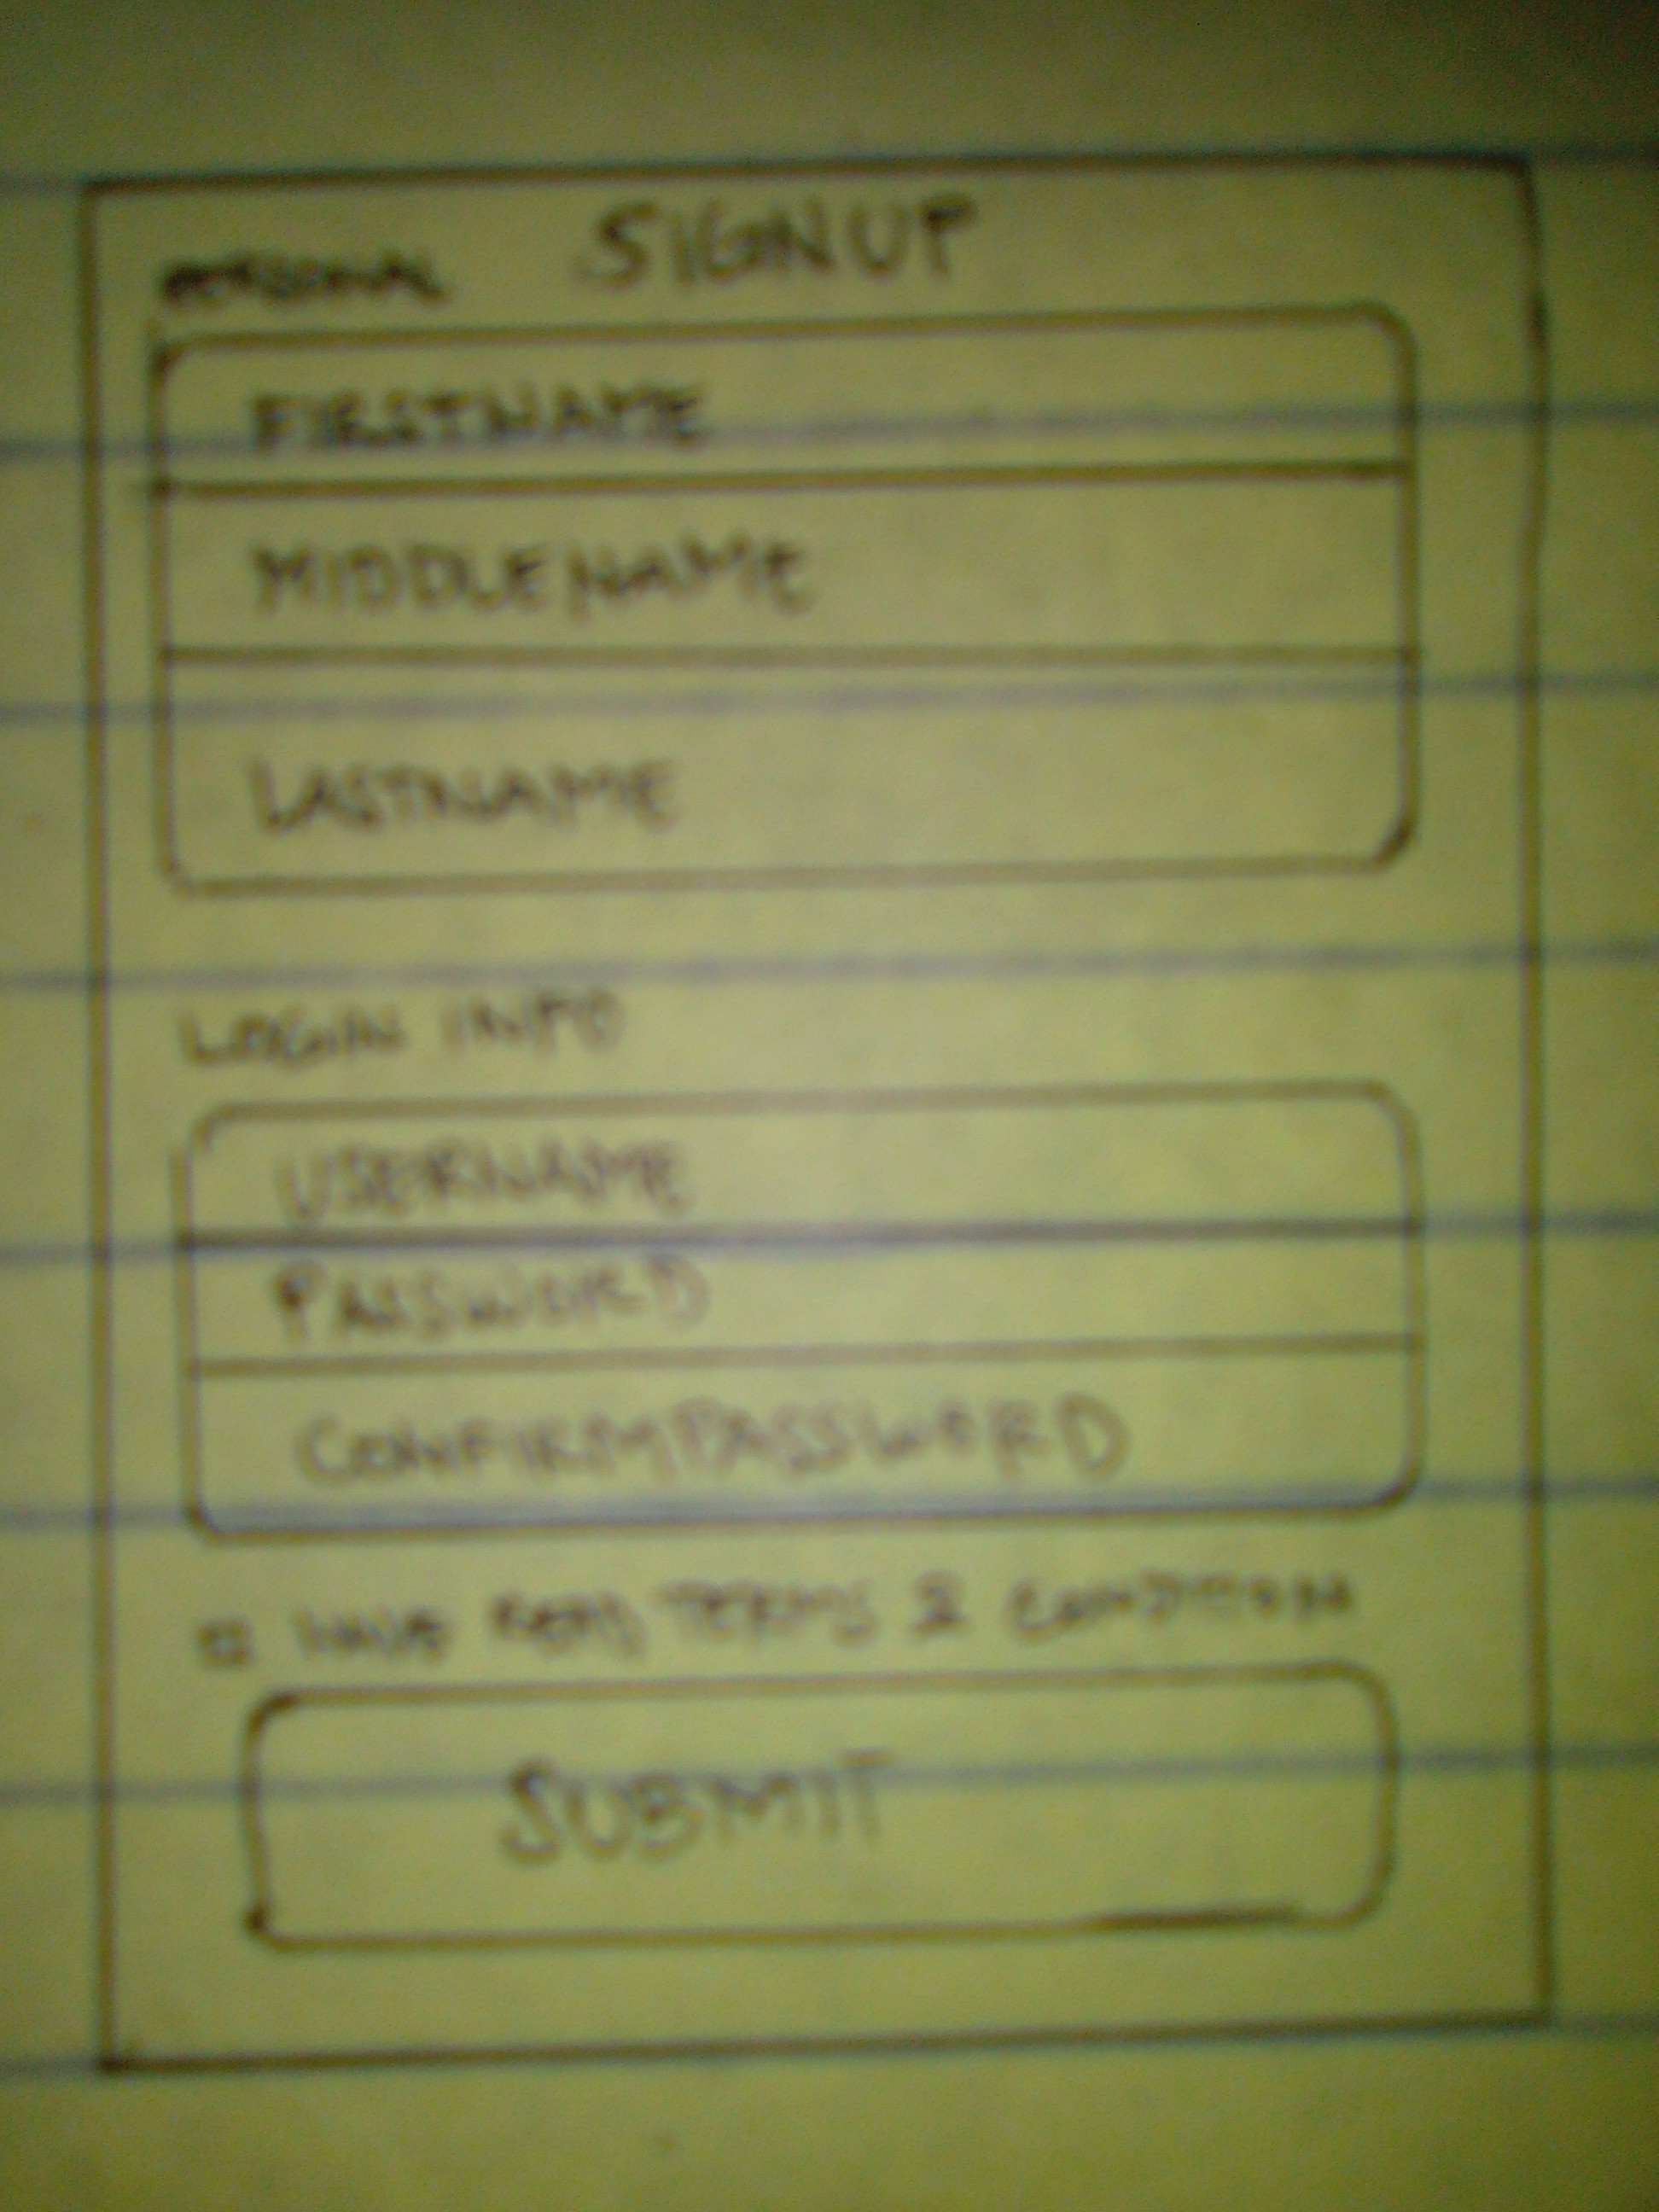 SIGNUP
PERSONAL
FIRSTNAME
MIDDLENAME
LASTNAME
LOGIN INFO
USERNAME
PASSWORD
CONFIRMPASSWORD
HAVE READ TERMS & CONDITION
SUBMIT